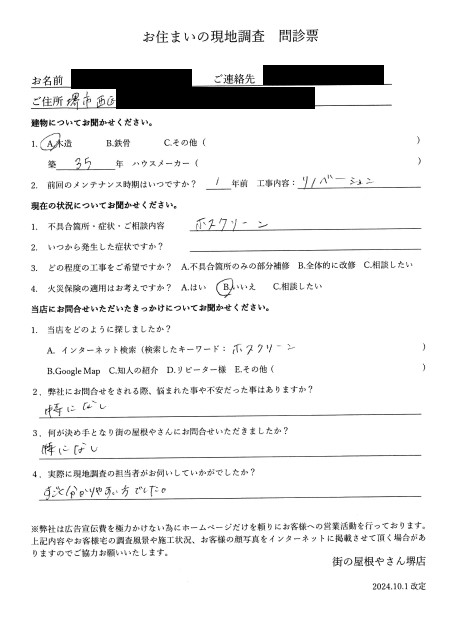 お住まいの現地調査　問診票
お名前　ご連絡先
ご住所 堺市西区
建物についてお聞かせください。
1. A.木造　B.鉄骨　C.その他（　）
築 35 年　ハウスメーカー（　）
2. 前回のメンテナンス時期はいつですか？ 1 年前　工事内容： リノベーション
現在の状況についてお聞かせください。
1. 不具合箇所・症状・ご相談内容　ホスクリーン
2. いつから発生した症状ですか？
3. どの程度の工事をご希望ですか？　A.不具合箇所のみの部分補修　B.全体的に改修　C.相談したい
4. 火災保険の適用はお考えですか？　A.はい　B.いいえ　C.相談したい
当店にお問合せいただいたきっかけについてお聞かせください。
1. 当店をどのように探しましたか？
A. インターネット検索（検索したキーワード： ホスクリーン ）
B.Google Map　C.知人の紹介　D.リピーター様　E.その他（　）
2．弊社にお問合せをされる際、悩まれた事や不安だった事はありますか？
特になし
3．何が決め手となり街の屋根やさんにお問合せいただきましたか？
特になし
4．実際に現地調査の担当者がお伺いしていかがでしたか？
すごく分かりやすい方でした。
※弊社は広告宣伝費を極力かけない為にホームページだけを頼りにお客様への営業活動を行っております。
上記内容やお客様宅の調査風景や施工状況、お客様の顔写真をインターネットに掲載させて頂く場合があ
りますのでご協力お願いいたします。
街の屋根やさん堺店
2024.10.1 改定